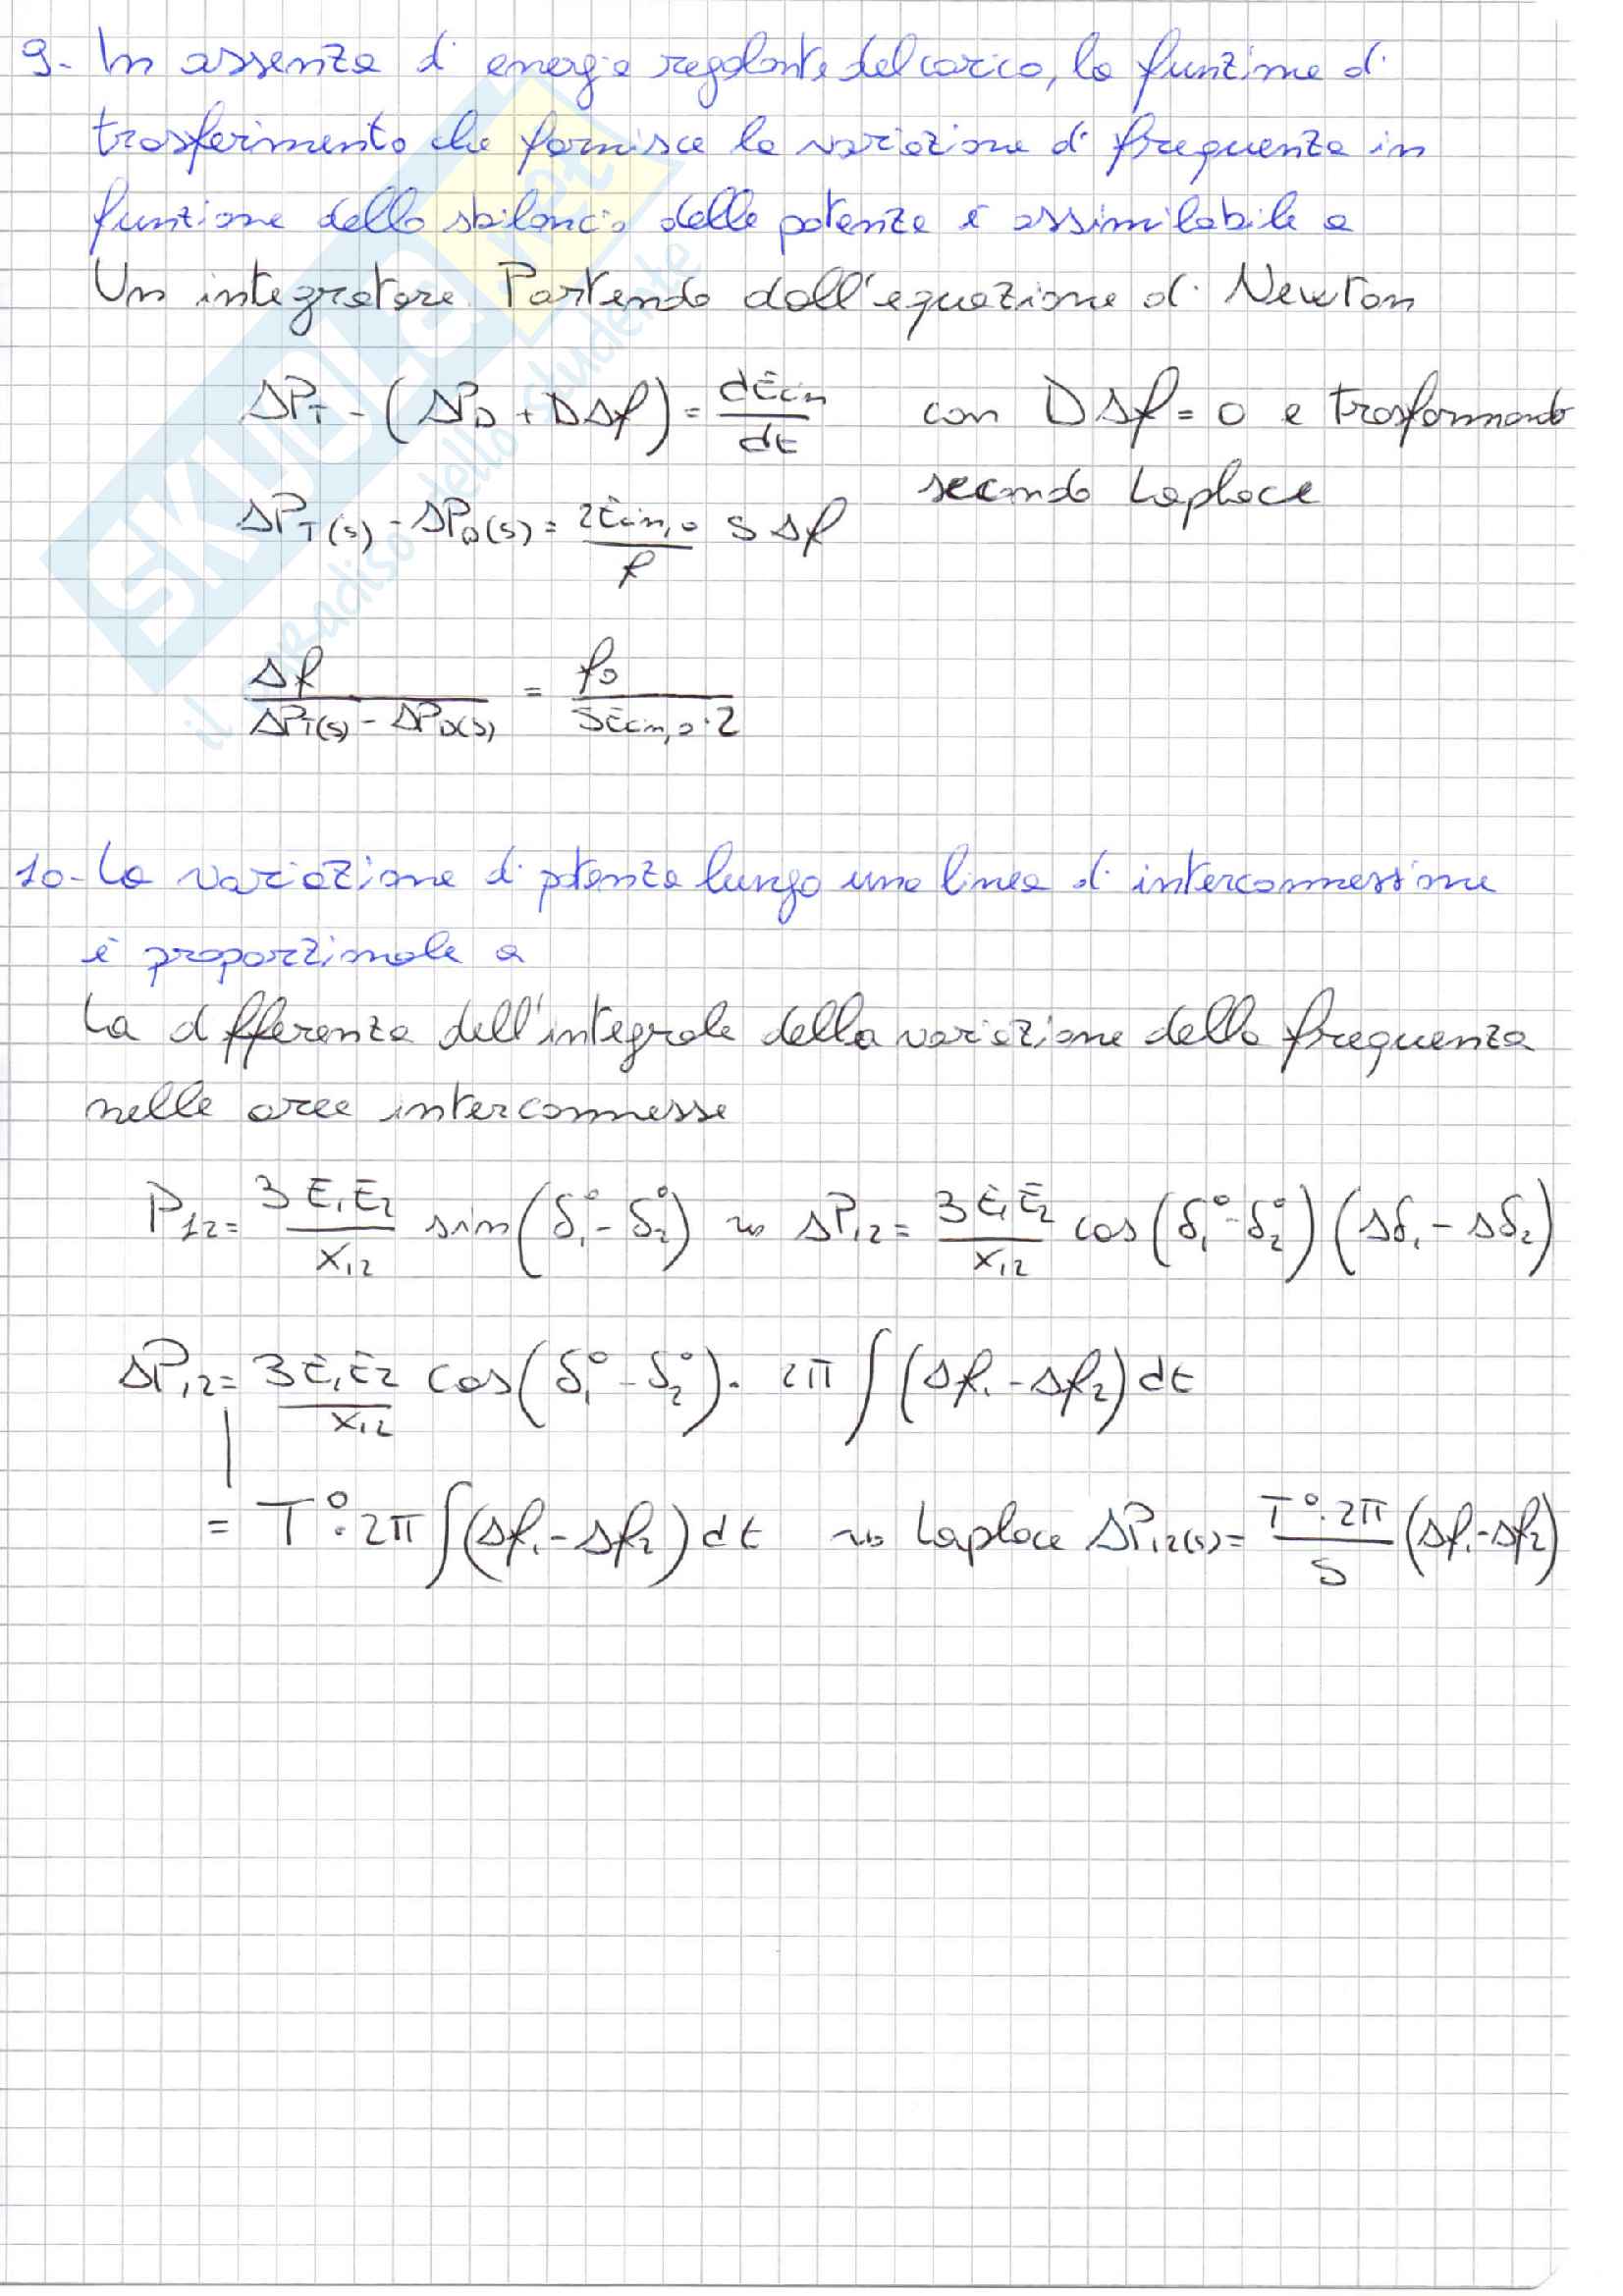 9- In assenza di energia regolante del carico, la funzione di
trasferimento che fornisce la variazione di frequenza in
funzione dello sbilancio delle potenze è assimilabile a
Un integratore. Partendo dall'equazione di Newton
ΔP_T - (ΔP_D + DΔf) = dEcin/dt con DΔf = 0 e trasformando
secondo Laplace
ΔP_T(s) - ΔP_D(s) = 2Ecin,0/f s Δf
Δf/(ΔP_T(s) - ΔP_D(s)) = f0/(sEcin,0·2)
10- La variazione di potenza lungo una linea di interconnessione
è proporzionale a
La differenza dell'integrale della variazione della frequenza
nelle aree interconnesse
P12 = 3E1E2/X12 sin(δ1° - δ2°) ⇝ ΔP12 = 3E1E2/X12 cos(δ1° - δ2°)(Δδ1 - Δδ2)
ΔP12 = 3E1E2/X12 cos(δ1° - δ2°) · 2π∫(Δf1 - Δf2)dt
= T°·2π∫(Δf1 - Δf2)dt ⇝ Laplace ΔP12(s) = T°·2π/s (Δf1 - Δf2)
SKUOLA.net
il paradiso dello studente